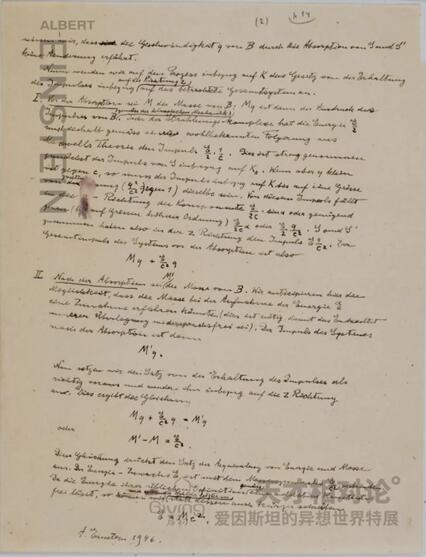 ALBERT
EINSTEIN
(2)
wissen wir, dass die Geschwindigkeit q von B durch die Absorption von S und S'
keine Aenderung erfährt.
Nun wenden wir auf den Prozess inbezug auf K das Gesetz von der Erhaltung
des Impulses inbezug auf das betrachtete Gesamtsystem an.
I. Vor der Absorption sei M die Masse von B; Mq ist dann der Ausdruck des
Impulses von B. Jeder der Strahlungs-Komplexe hat die Energie E/2
und deshalb gemäss einer wohlbekannten Folgerung aus
Maxwells Theorie den Impuls E/2 · 1/c. Dies ist streng genommen
der Impuls von S inbezug auf K₀. Wenn aber q klein
ist gegen c, so muss der Impuls inbezug auf K bis auf eine Grösse
(q²/c² gegen 1) dieselbe sein. Von diesem Impuls fällt
in die Z-Richtung die Komponente
E/2c α oder E/2 · q/c². S und S'
zusammen haben also in der Z Richtung den Impuls E q/c². Der
Gesamtimpuls des Systems vor der Absorption ist also
Mq + E/c² q
II. Nach der Absorption sei M' die Masse von B. Wir antizipieren hier die
Möglichkeit, dass die Masse bei der Aufnahme der Energie E
eine Zunahme erfahren könnte (dies ist nötig, damit das Endresultat
unserer Überlegung widerspruchsfrei sei). Der Impuls des Systemes
nach der Absorption ist dann
M'q.
Nun setzen wir den Satz von der Erhaltung des Impulses als
richtig voraus und wenden ihn inbezug auf die Z Richtung
an. Dies ergibt die Gleichung
Mq + E/c² q = M'q
oder
M' - M = E/c²
Diese Gleichung drückt den Satz der Äquivalenz von Energie und Masse
aus. Der Energie-Zuwachs E ist mit dem Massenzuwachs
Da die Energie ihrer üblichen Definition gemäss eine additive Konstante
frei lässt, so
E = Mc².
A. Einstein 1946.
天才相对论
爱因斯坦的异想世界特展